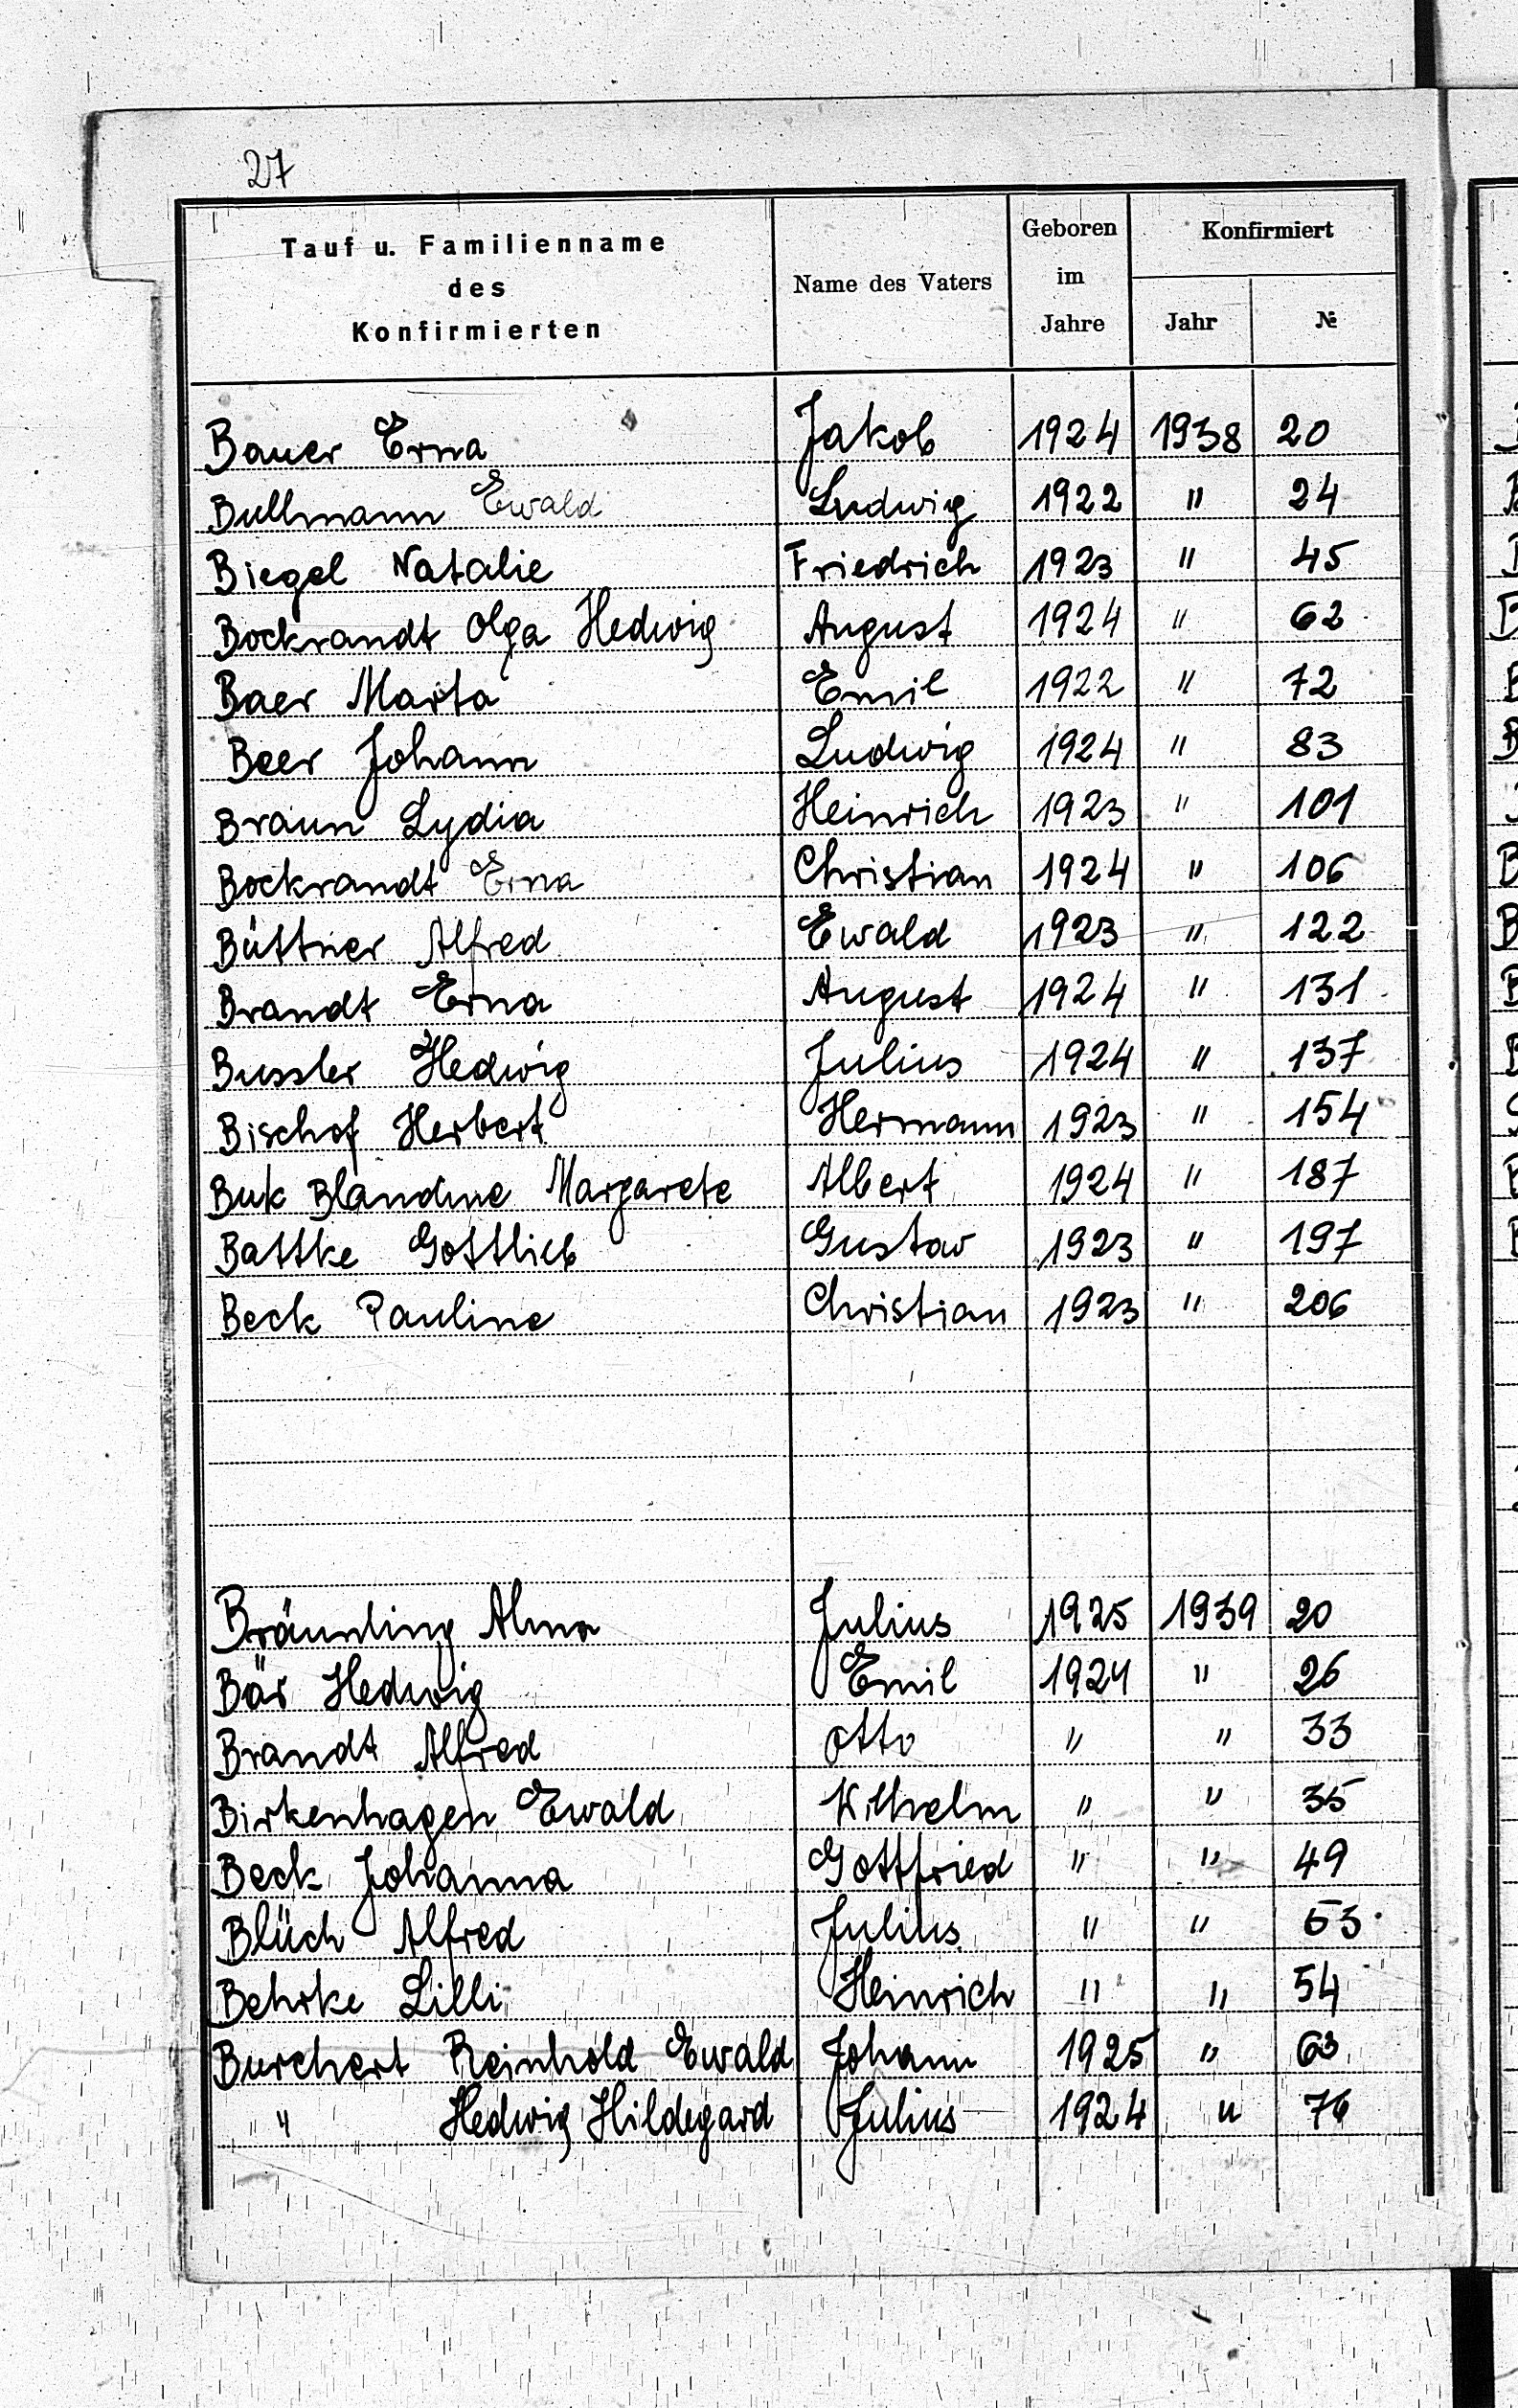 27
Tauf u. Familienname des Konfirmierten | Name des Vaters | Geboren im Jahre | Konfirmiert Jahr | №
Bauer Erna | Jakob | 1924 | 1938 | 20
Bullmann Ewald | Ludwig | 1922 | " | 24
Biegel Natalie | Friedrich | 1923 | " | 45
Bockrandt Olga Hedwig | August | 1924 | " | 62
Baer Marta | Emil | 1922 | " | 72
Beer Johann | Ludwig | 1924 | " | 83
Braun Lydia | Heinrich | 1923 | " | 101
Bockrandt Erna | Christian | 1924 | " | 106
Büttner Alfred | Ewald | 1923 | " | 122
Brandt Erna | August | 1924 | " | 131
Bussler Hedwig | Julius | 1924 | " | 137
Bischof Herbert | Hermann | 1923 | " | 154
Buk Blandine Margarete | Albert | 1924 | " | 187
Battke Gottlieb | Gustav | 1923 | " | 197
Beck Pauline | Christian | 1923 | " | 206
Bräunling Alma | Julius | 1925 | 1939 | 20
Bär Hedwig | Emil | 1924 | " | 26
Brandt Alfred | Otto | " | " | 33
Birkenhagen Ewald | Wilhelm | " | " | 35
Beck Johanna | Gottfried | " | " | 49
Blüch Alfred | Julius | " | " | 53
Behrke Lilli | Heinrich | " | " | 54
Burchert Reinhold Ewald | Johann | 1925 | " | 63
" Hedwig Hildegard | Julius | 1924 | " | 76